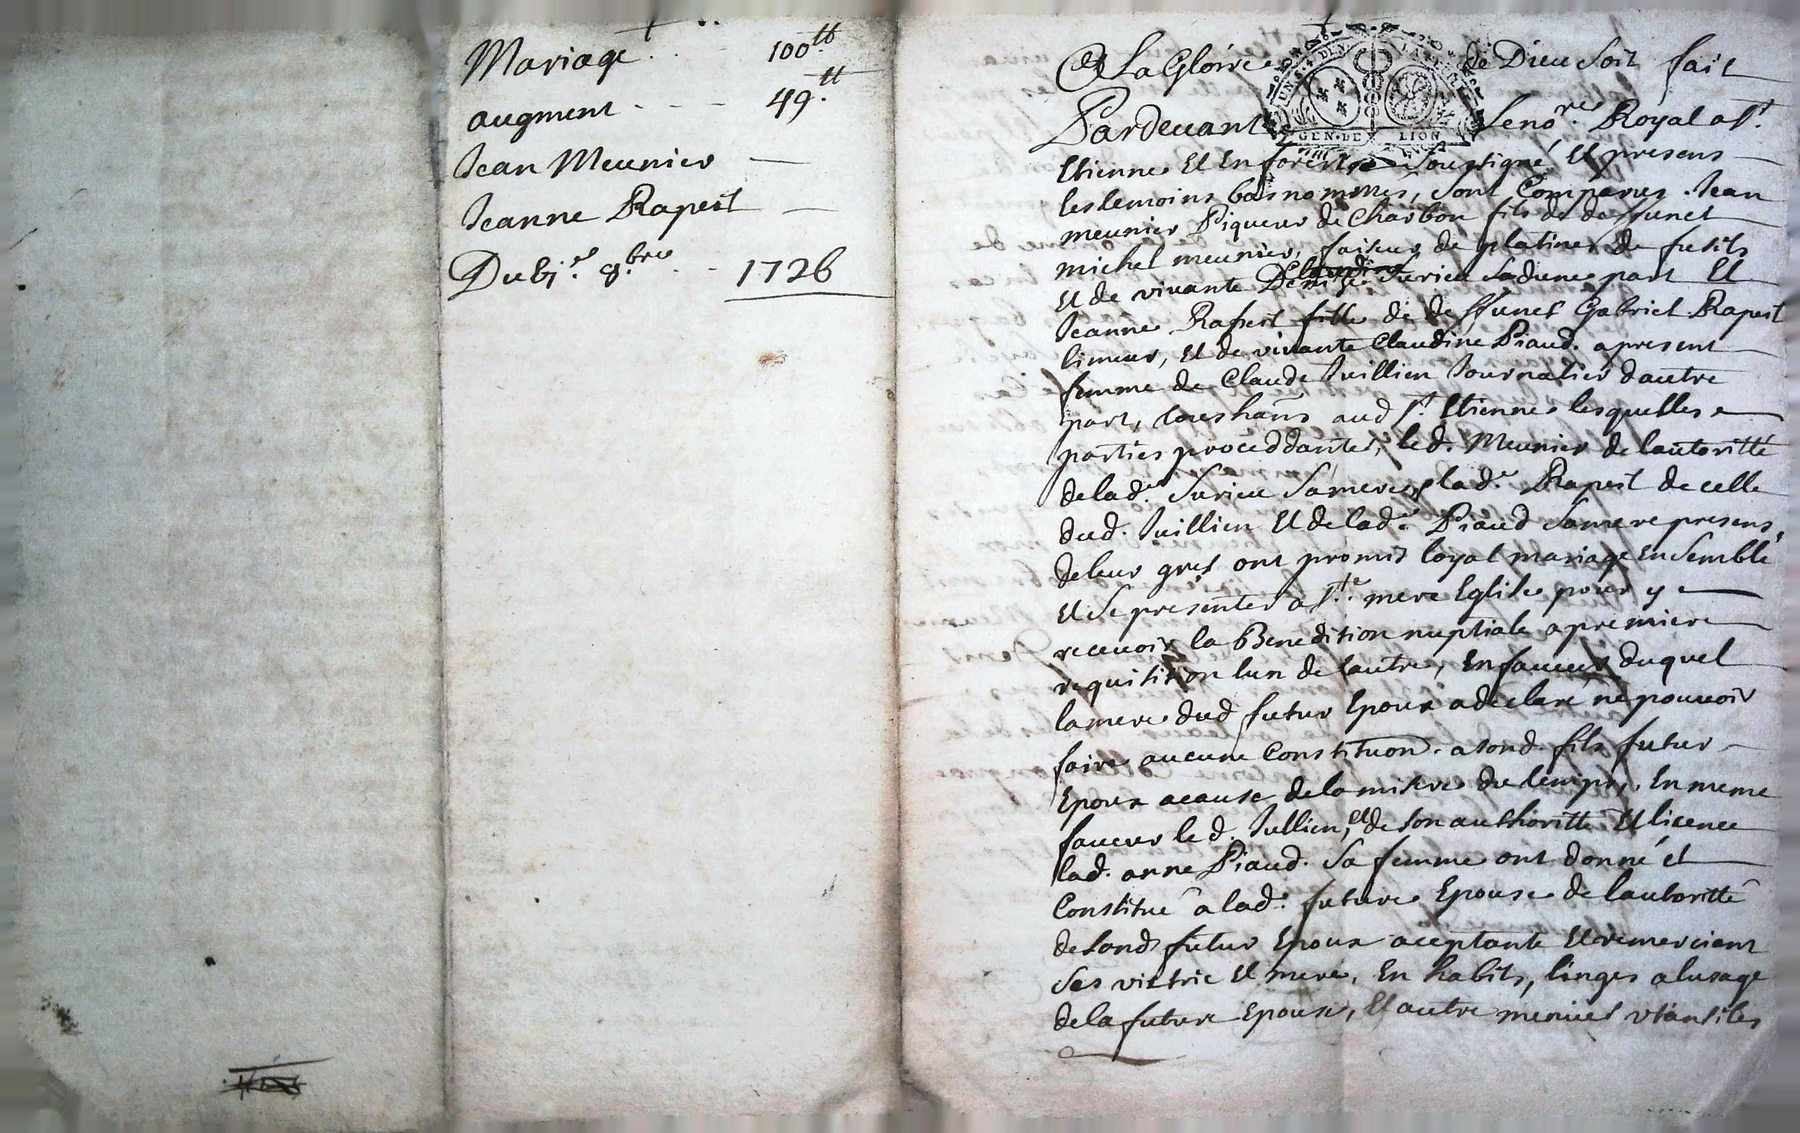 Mariage 100tt
augment - - - 49.tt
Jean Meunier —
Jeanne Rapest —
Du 6j.e 9.bre - 1726
A La Gloire de Dieu Soit fait
Pardevant Le no.re Royal a St.
Etienne Et En forest Soussigné Et presens
les temoins bas nommes, Sont Comparus Jean
meunier Piqueur de Charbon fils de deffunct
michel meunier, faiseur de platines de fusils
Et de vivante Surieu Sa dune part Et
Jeanne Rapest fille de deffunct Gabriel Rapest
limeur, Et de vivante Claudine Piaud. apresent
femme de Claude Juillien Journalier dautre
part, tous hans aud St. Etienne lesquelles
parties proceddantes, led. Meunier de lautoritté
delad.e Surieu Sa mere, lad.e Rapest de celle
dud. Juillien Et delad.e Piaud Sa mere presens,
de leur grés ont promis loyal mariage Ensemble
Et Se presenter a Ste. mere Eglise pour y
recevoir la Benedition nuptiale a premiere
requisition lun de lautre, En faveur duquel
la mere dud futur Epoux a declaré ne pouvoir
faire aucune Constitution a sond. fils futur
Epoux a cause de la misere du temps, En meme
faveur led. Jullien, et de Son authoritté Et licence
lad. anne Piaud. Sa femme ont donné et
Constitué a lad.e future Epouse de lautoritté
de Sond futur Epoux aceptante Et remerciant
Ses vittric Et mere, En habits, linges a lusage
de la future Epouse, Et autre menues utansiles